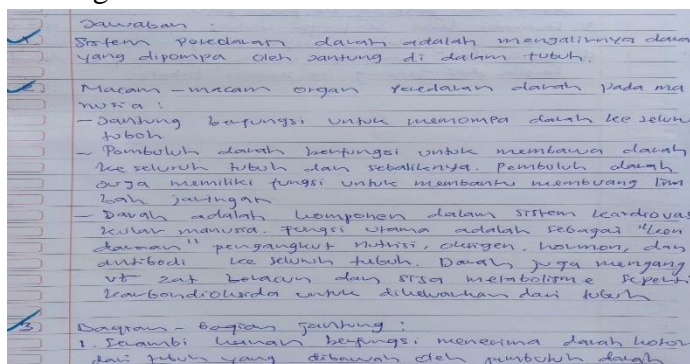 Jawaban :
1 Sistem Peredaran darah adalah mengalirnya dara
yang dipompa oleh Jantung di dalam tubuh.
2 Macam - macam organ peredaran darah pada ma
nusia :
- Jantung berfungsi untuk memompa darah ke selur
tuboh
- Pembuluh darah berfungsi untuk membawa darah
ke seluruh tubuh dan sebaliknya. Pembuluh darah
juga memiliki fungsi untuk membantu membuang lim
bah jaringan
- Darah adalah komponen dalam sistem kardiovas
kular manusia. fungsi utama adalah sebagai "ken
daraan" pengangkut nutrisi, oksigen, hormon, dan
antibodi ke seluruh tubuh. Darah juga mengang
ut zat beracun dan sisa metabolisme seperti
karbondioksida untuk dikeluarkan dari tubuh
3 Bagian - bagian jantung :
1. Serambi kanan berfungsi menerima darah kotor
dari tubuh yang dibawah oleh pembuluh darah